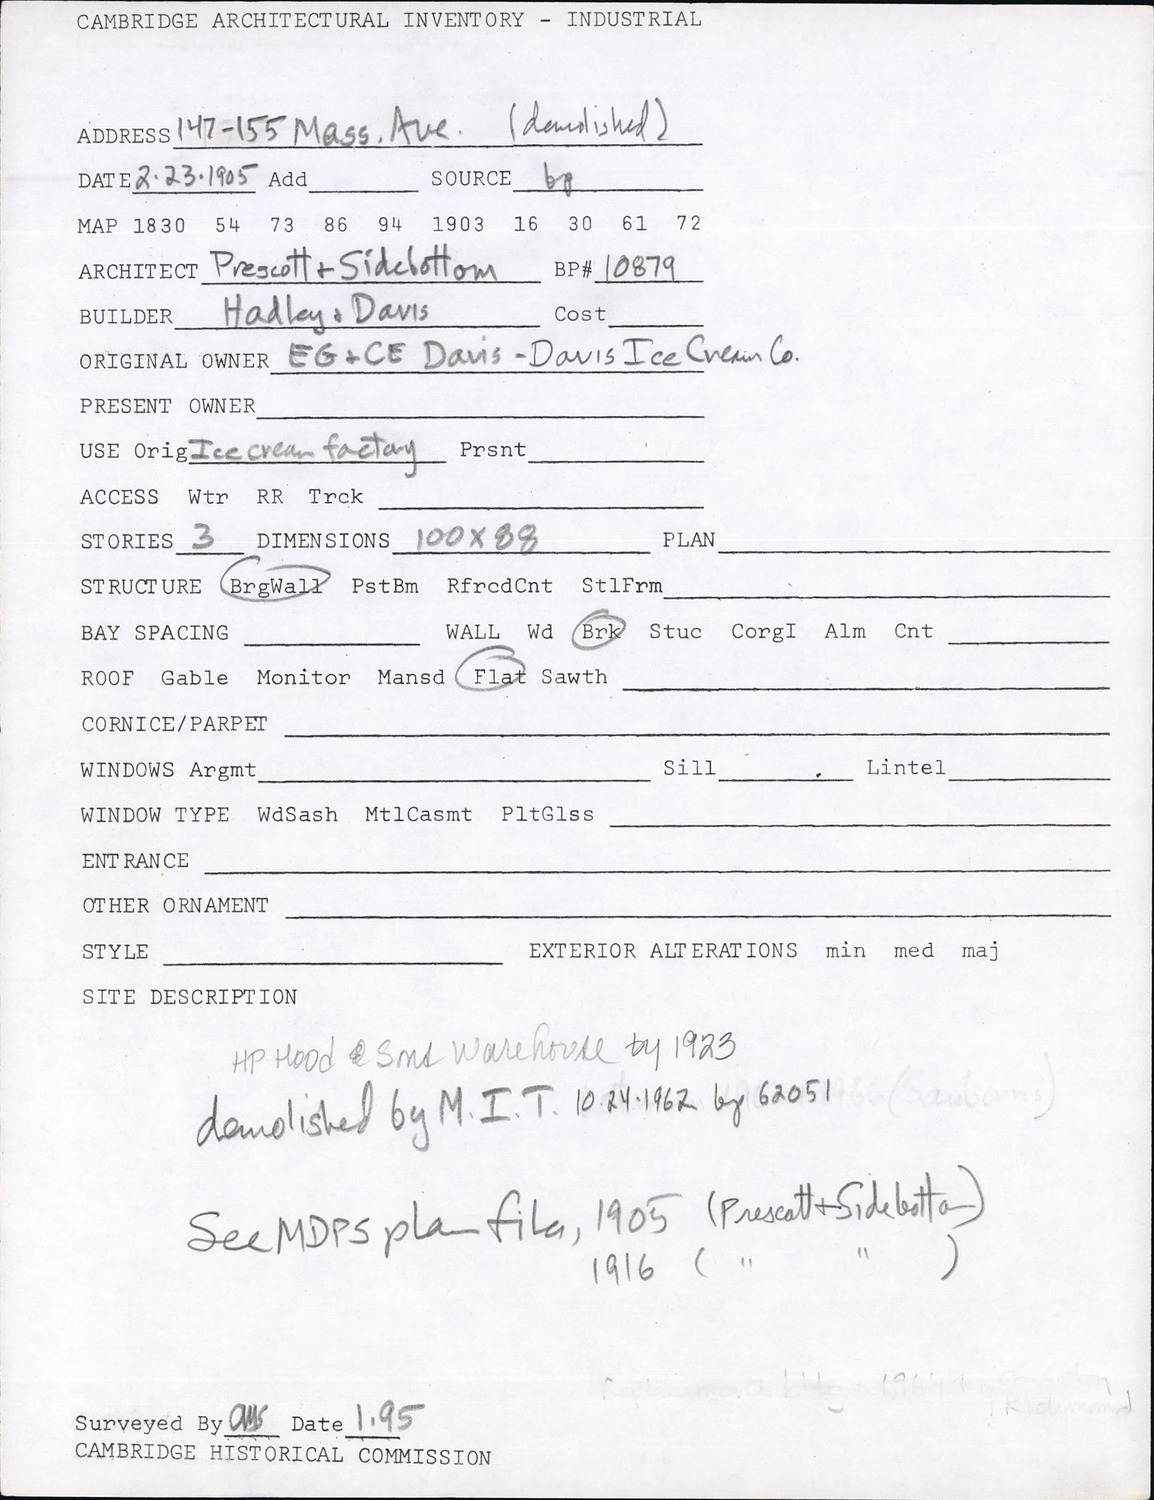 CAMBRIDGE ARCHITECTURAL INVENTORY - INDUSTRIAL
ADDRESS 147-155 Mass. Ave. (demolished)
DATE 2.23.1905 Add SOURCE bp
MAP 1830 54 73 86 94 1903 16 30 61 72
ARCHITECT Prescott + Sidebottom BP# 10879
BUILDER Hadley + Davis Cost
ORIGINAL OWNER EG + CE Davis - Davis Ice Cream Co.
PRESENT OWNER
USE Orig Ice cream factory Prsnt
ACCESS Wtr RR Trck
STORIES 3 DIMENSIONS 100 X 88 PLAN
STRUCTURE BrgWall PstBm RfrcdCnt StlFrm
BAY SPACING WALL Wd Brk Stuc CorgI Alm Cnt
ROOF Gable Monitor Mansd Flat Sawth
CORNICE/PARPET
WINDOWS Argmt Sill Lintel
WINDOW TYPE WdSash MtlCasmt PltGlss
ENTRANCE
OTHER ORNAMENT
STYLE EXTERIOR ALTERATIONS min med maj
SITE DESCRIPTION
HP Hood & Sons Warehouse by 1923
demolished by M.I.T. 10.24.1962 bp 62051
See MDPS plan file, 1905 (Prescott + Sidebottom)
1916 ( " " )
Surveyed By Date 1.95
CAMBRIDGE HISTORICAL COMMISSION